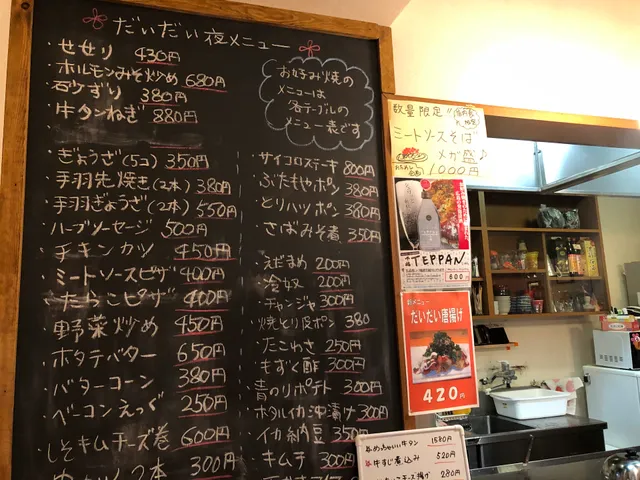 だいだい夜メニュー
・せせり 430円
・ホルモンみそ炒め 680円
・石ケずり 380円
・牛タンねぎ 880円
お好み焼の
メニューは
各テーブルの
メニュー表です
・ぎょうざ(5コ) 350円
・手羽先焼き(2本) 380円
・手羽ぎょうざ(2本) 550円
・ハーブソーセージ 500円
・チキンカツ 450円
・ミートソースピザ 400円
・たらこピザ 400円
・野菜炒め 450円
・ホタテバター 650円
・バターコーン 380円
・ベーコンえっぐ 250円
・しそキムチーズ巻 600円
300円
・サイコロステーキ 800円
・ぶたもやポン 380円
・とりハツポン 380円
・さばみそ煮 350円
・えだまめ 200円
・冷奴 200円
・チャンジャ 300円
・焼とり皮ポン 380
・たこわさ 250円
・もずく酢 300円
・青のりポテト 300円
・ホタルイカ沖漬け 300円
・イカ納豆 350
・キムチ 300円
数量限定!!
ミートソースそば
メガ盛♪
1000円
TEPPAN
600円
新メニュー
だいだい唐揚げ
420円
めっちゃいい牛タン 1580円
牛すじ煮込み 520円
280円